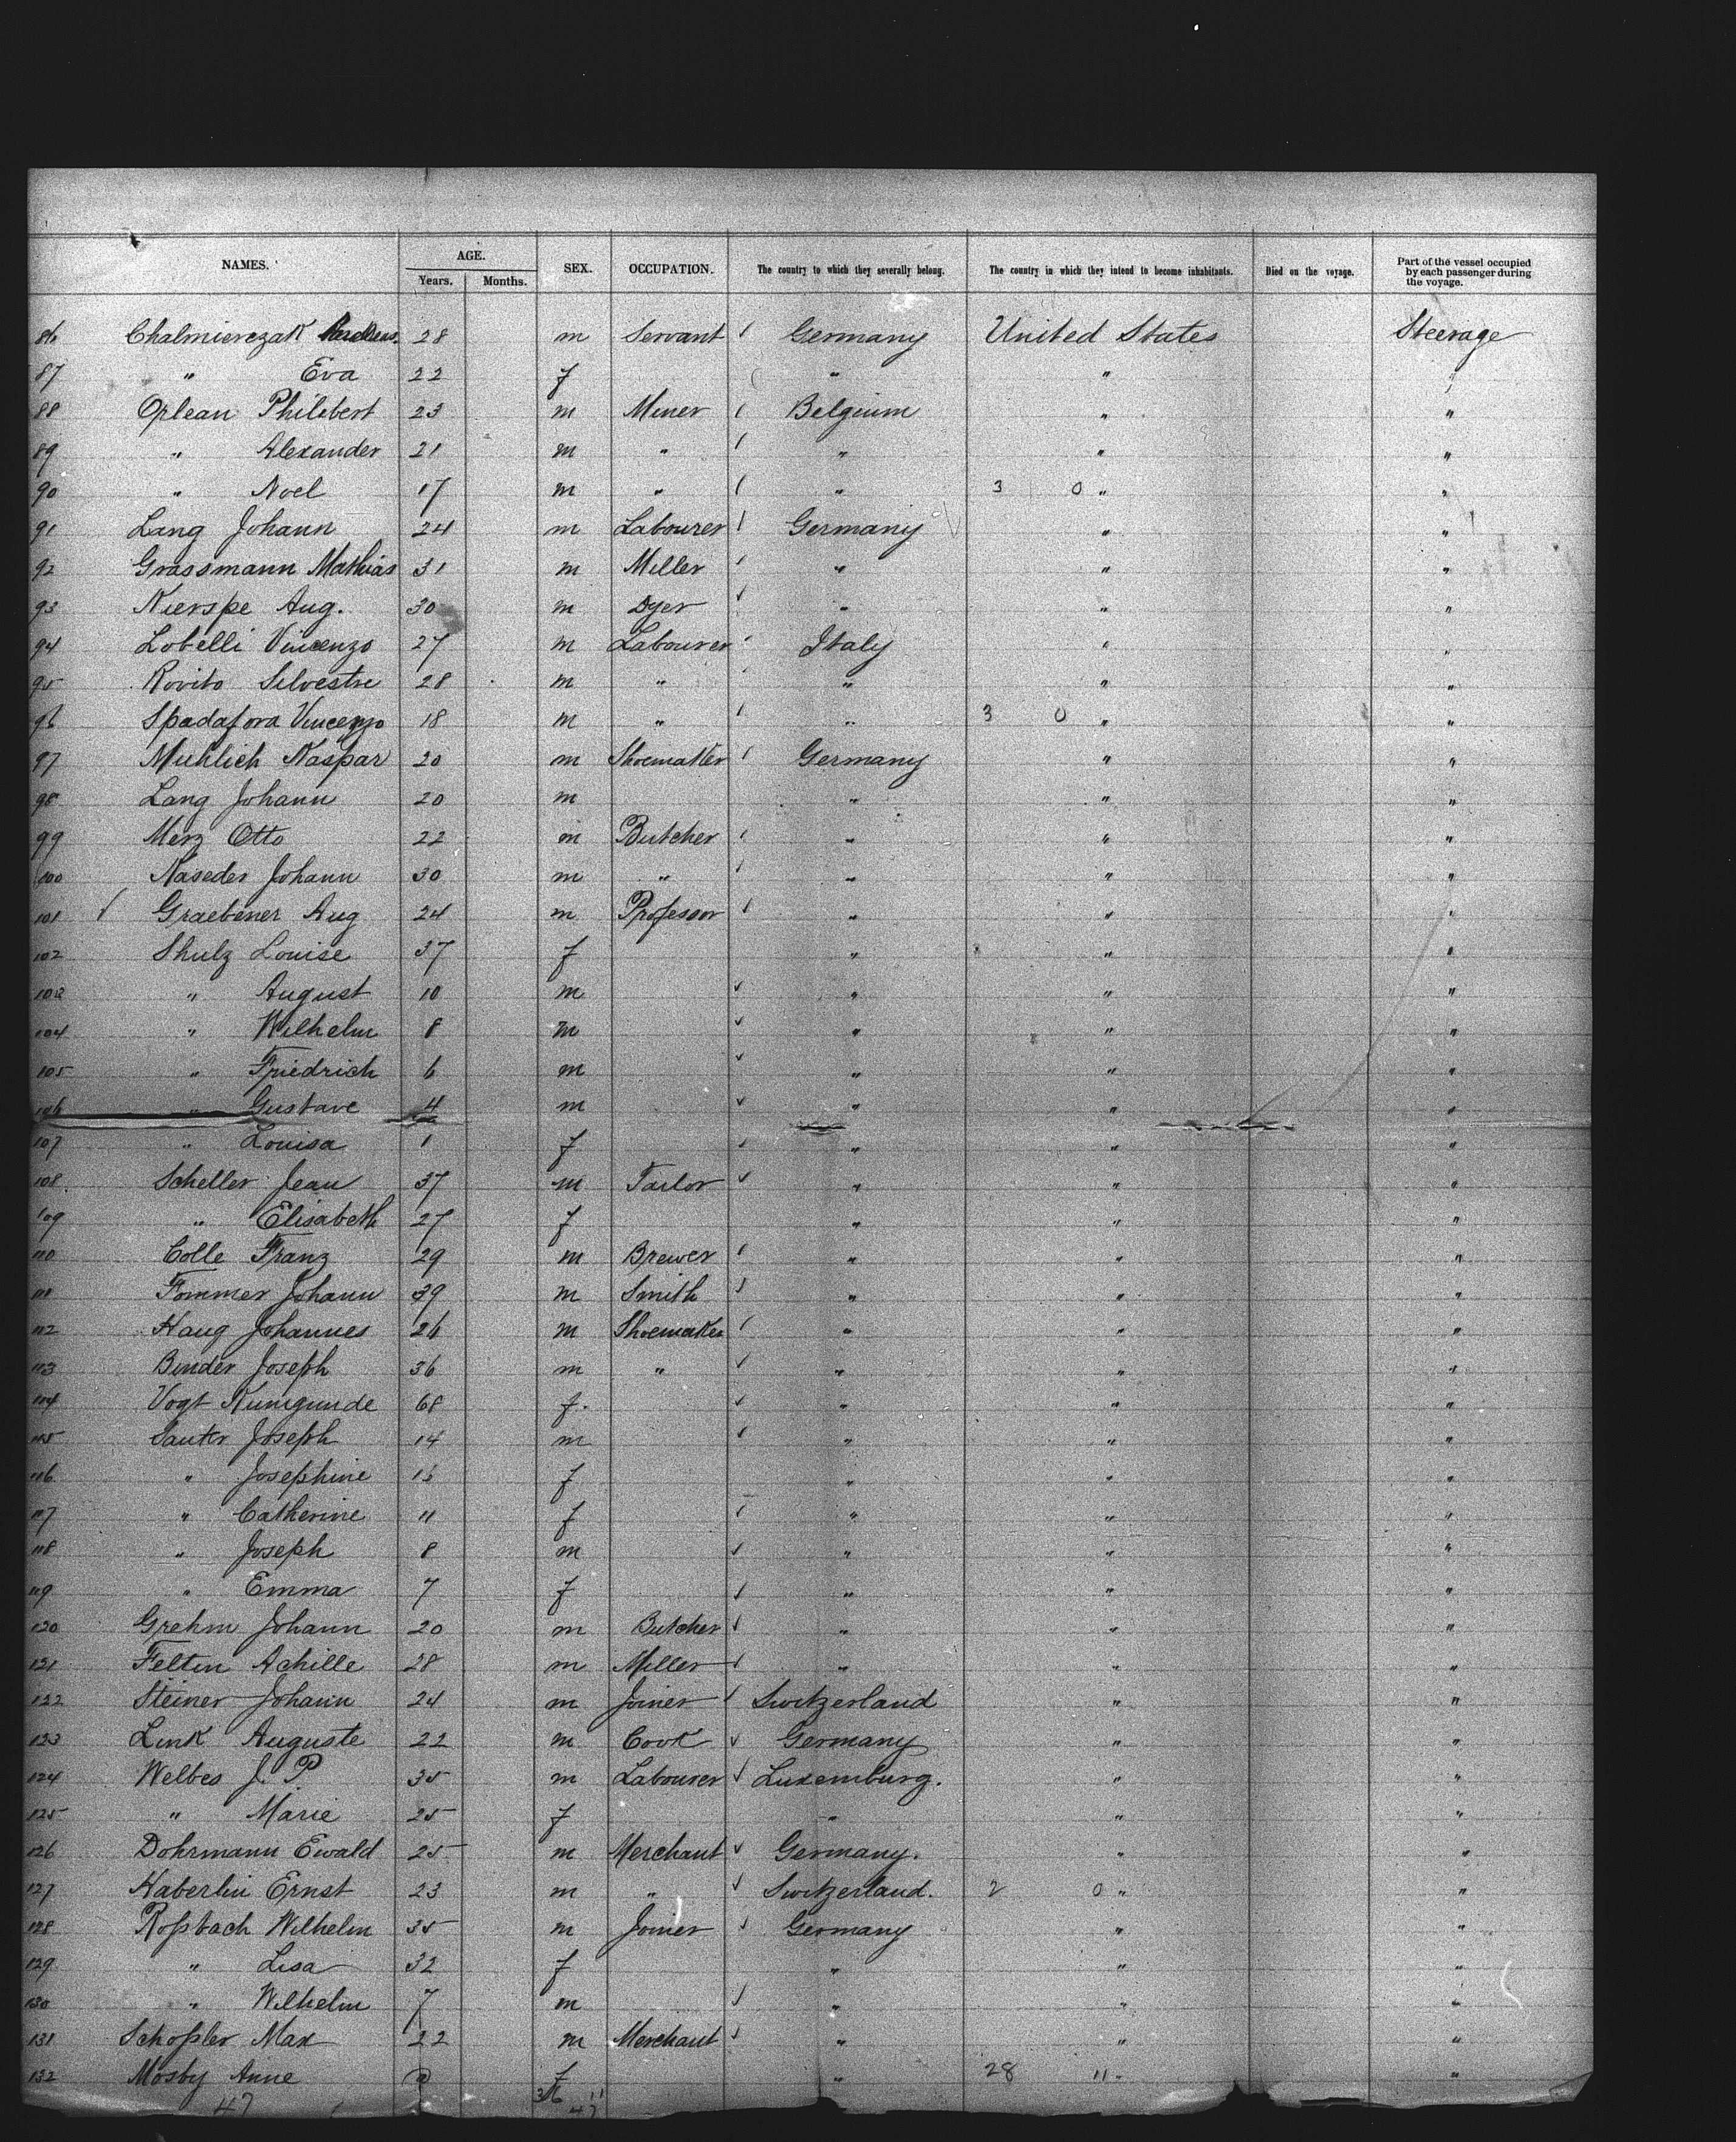 NAMES. AGE. SEX. OCCUPATION. The country to which they severally belong. The country in which they intend to become inhabitants. Died on the voyage. Part of the vessel occupied by each passenger during the voyage.
Years. Months.
86 Chalmierczak 28 m Servant Germany United States Steerage
87 " Eva 22 f " " "
88 Orlean Philibert 23 m Miner Belgium " "
89 " Alexander 21 m " " " "
90 " Noel 17 m " " 3 0 " "
91 Lang Johann 24 m Labourer Germany " "
92 Grassmann Mathias 31 m Miller " " "
93 Kierspe Aug. 30 m Dyer " " "
94 Lobelli Vincenzo 27 m Labourer Italy " "
95 Rovito Silvestre 28 m " " " "
96 Spadafora Vincenzo 18 m " " 3 0 " "
97 Muhlich Kaspar 20 m Shoemaker Germany " "
98 Lang Johann 20 m " " "
99 Merz Otto 22 m Butcher " " "
100 Kaseder Johann 30 m " " " "
101 Graebener Aug 24 m Professor " " "
102 Shulz Louise 37 f " " "
103 " August 10 m " " "
104 " Wilhelm 8 m " " "
105 " Friedrich 6 m " " "
106 " Gustave 4 m " " "
107 " Louisa 1 f " " "
108 Scheller Jean 37 m Tailor " " "
109 " Elisabeth 27 f " " "
110 Colle Franz 29 m Brewer " " "
111 Fommer Johann 39 m Smith " " "
112 Haug Johannes 26 m Shoemaker " " "
113 Binder Joseph 36 m " " " "
114 Vogt Kunigunde 68 f. " " "
115 Sauter Joseph 14 m " " "
116 " Josephine f " " "
117 " Catherine 11 f " " "
118 " Joseph 8 m " " "
119 " Emma 7 f " " "
120 Grehm Johann 20 m Butcher " " "
121 Feltin Achille 28 m Miller " " "
122 Steiner Johann 24 m Joiner Switzerland " "
123 Link Auguste 22 m Cook Germany " "
124 Welbes J. P. 35 m Labourer Luxemburg. " "
125 " Marie 25 f " " "
126 Dohrmann Ewald 25 m Merchant Germany. " "
127 Haberlin Ernst 23 m " Switzerland. 2 0 " "
128 Roßbach Wilhelm 35 m Joiner Germany " "
129 " Lisa 32 f " " "
130 " Wilhelm 7 m " " "
131 Schoßler Max 22 m Merchant " " "
132 Mosby Anne f " 28 11 "
47 36 11
47